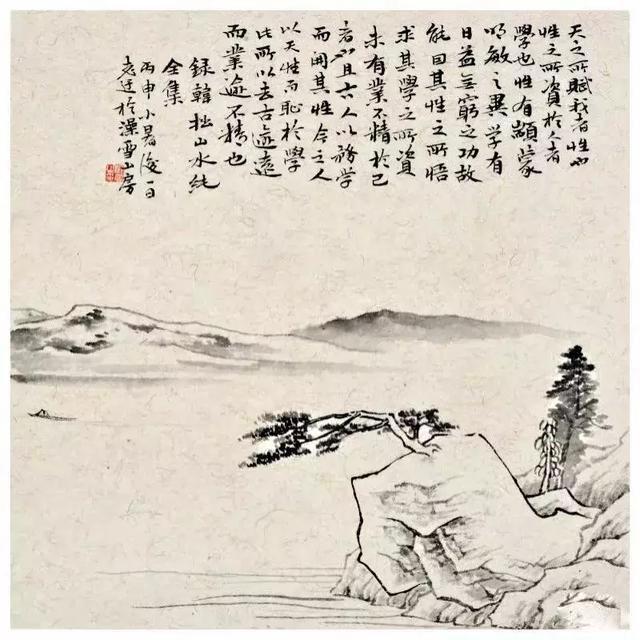 天之所賦我者性也
性之所資於人者
學也性有顓蒙
明敏之異學有
日益無窮之功故
能因其性之所悟
求其學之所資
未有業不精於己
者也且古人以務學
而開其性今之人
以天性而恥於學
此所以去古逾遠
而業逾不精也
錄韓拙山水純
全集
丙申小暑後一日
於澡雪山房